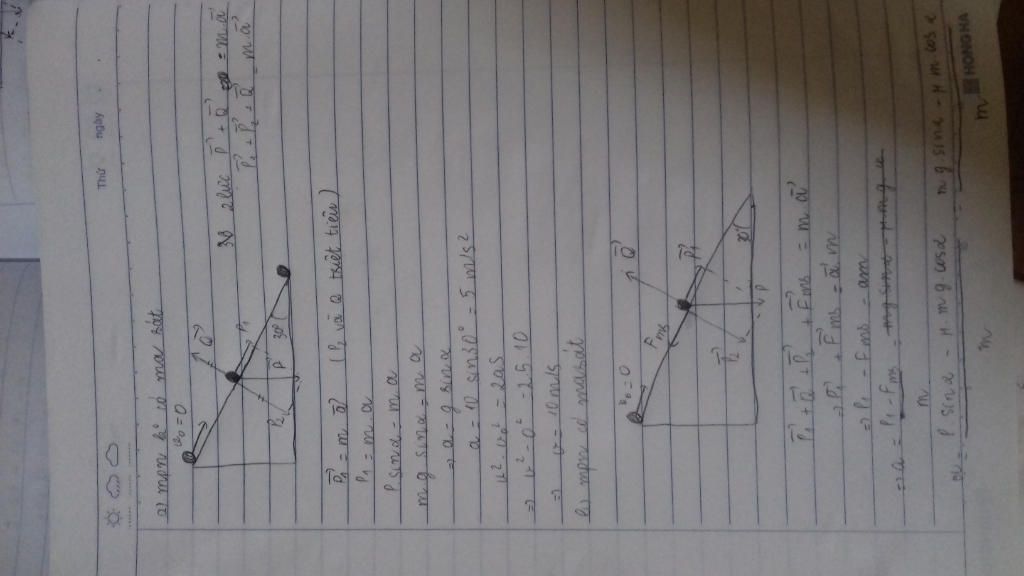 Thứ ngày
a) mpn k° có ma sát
v₀ = 0
Q⃗
P₁
P₂
P⃗
30°
2 lúc P⃗ + Q⃗ = m a⃗
P⃗₁ + P⃗₂ + Q⃗ = m a⃗
P⃗₁ = m a⃗ (P₂ và Q triệt tiêu)
P₁ = m. a
P sinα = m. a
m g sinα = m a
⇒ a = g sinα
a = 10 sin 30° = 5 m/s²
v² - v₀² = 2as
⇒ v² - 0² = 2.5.10
⇒ v = 10 m/s
b) mpn có ma sát
v₀ = 0
Q⃗
Fms
P⃗₁
P⃗₂
P
30°
P⃗₁ + Q⃗ + P⃗₂ + F⃗ms = m a⃗
⇒ P⃗₁ + F⃗ms = a⃗ m
⇒ P₁ - Fms = am
⇒ a = P₁ - Fms = mg sinα - μ mg
m
= P sinα - μ. m g cosα m g sinα - μ m cos α
m m
HONG HA